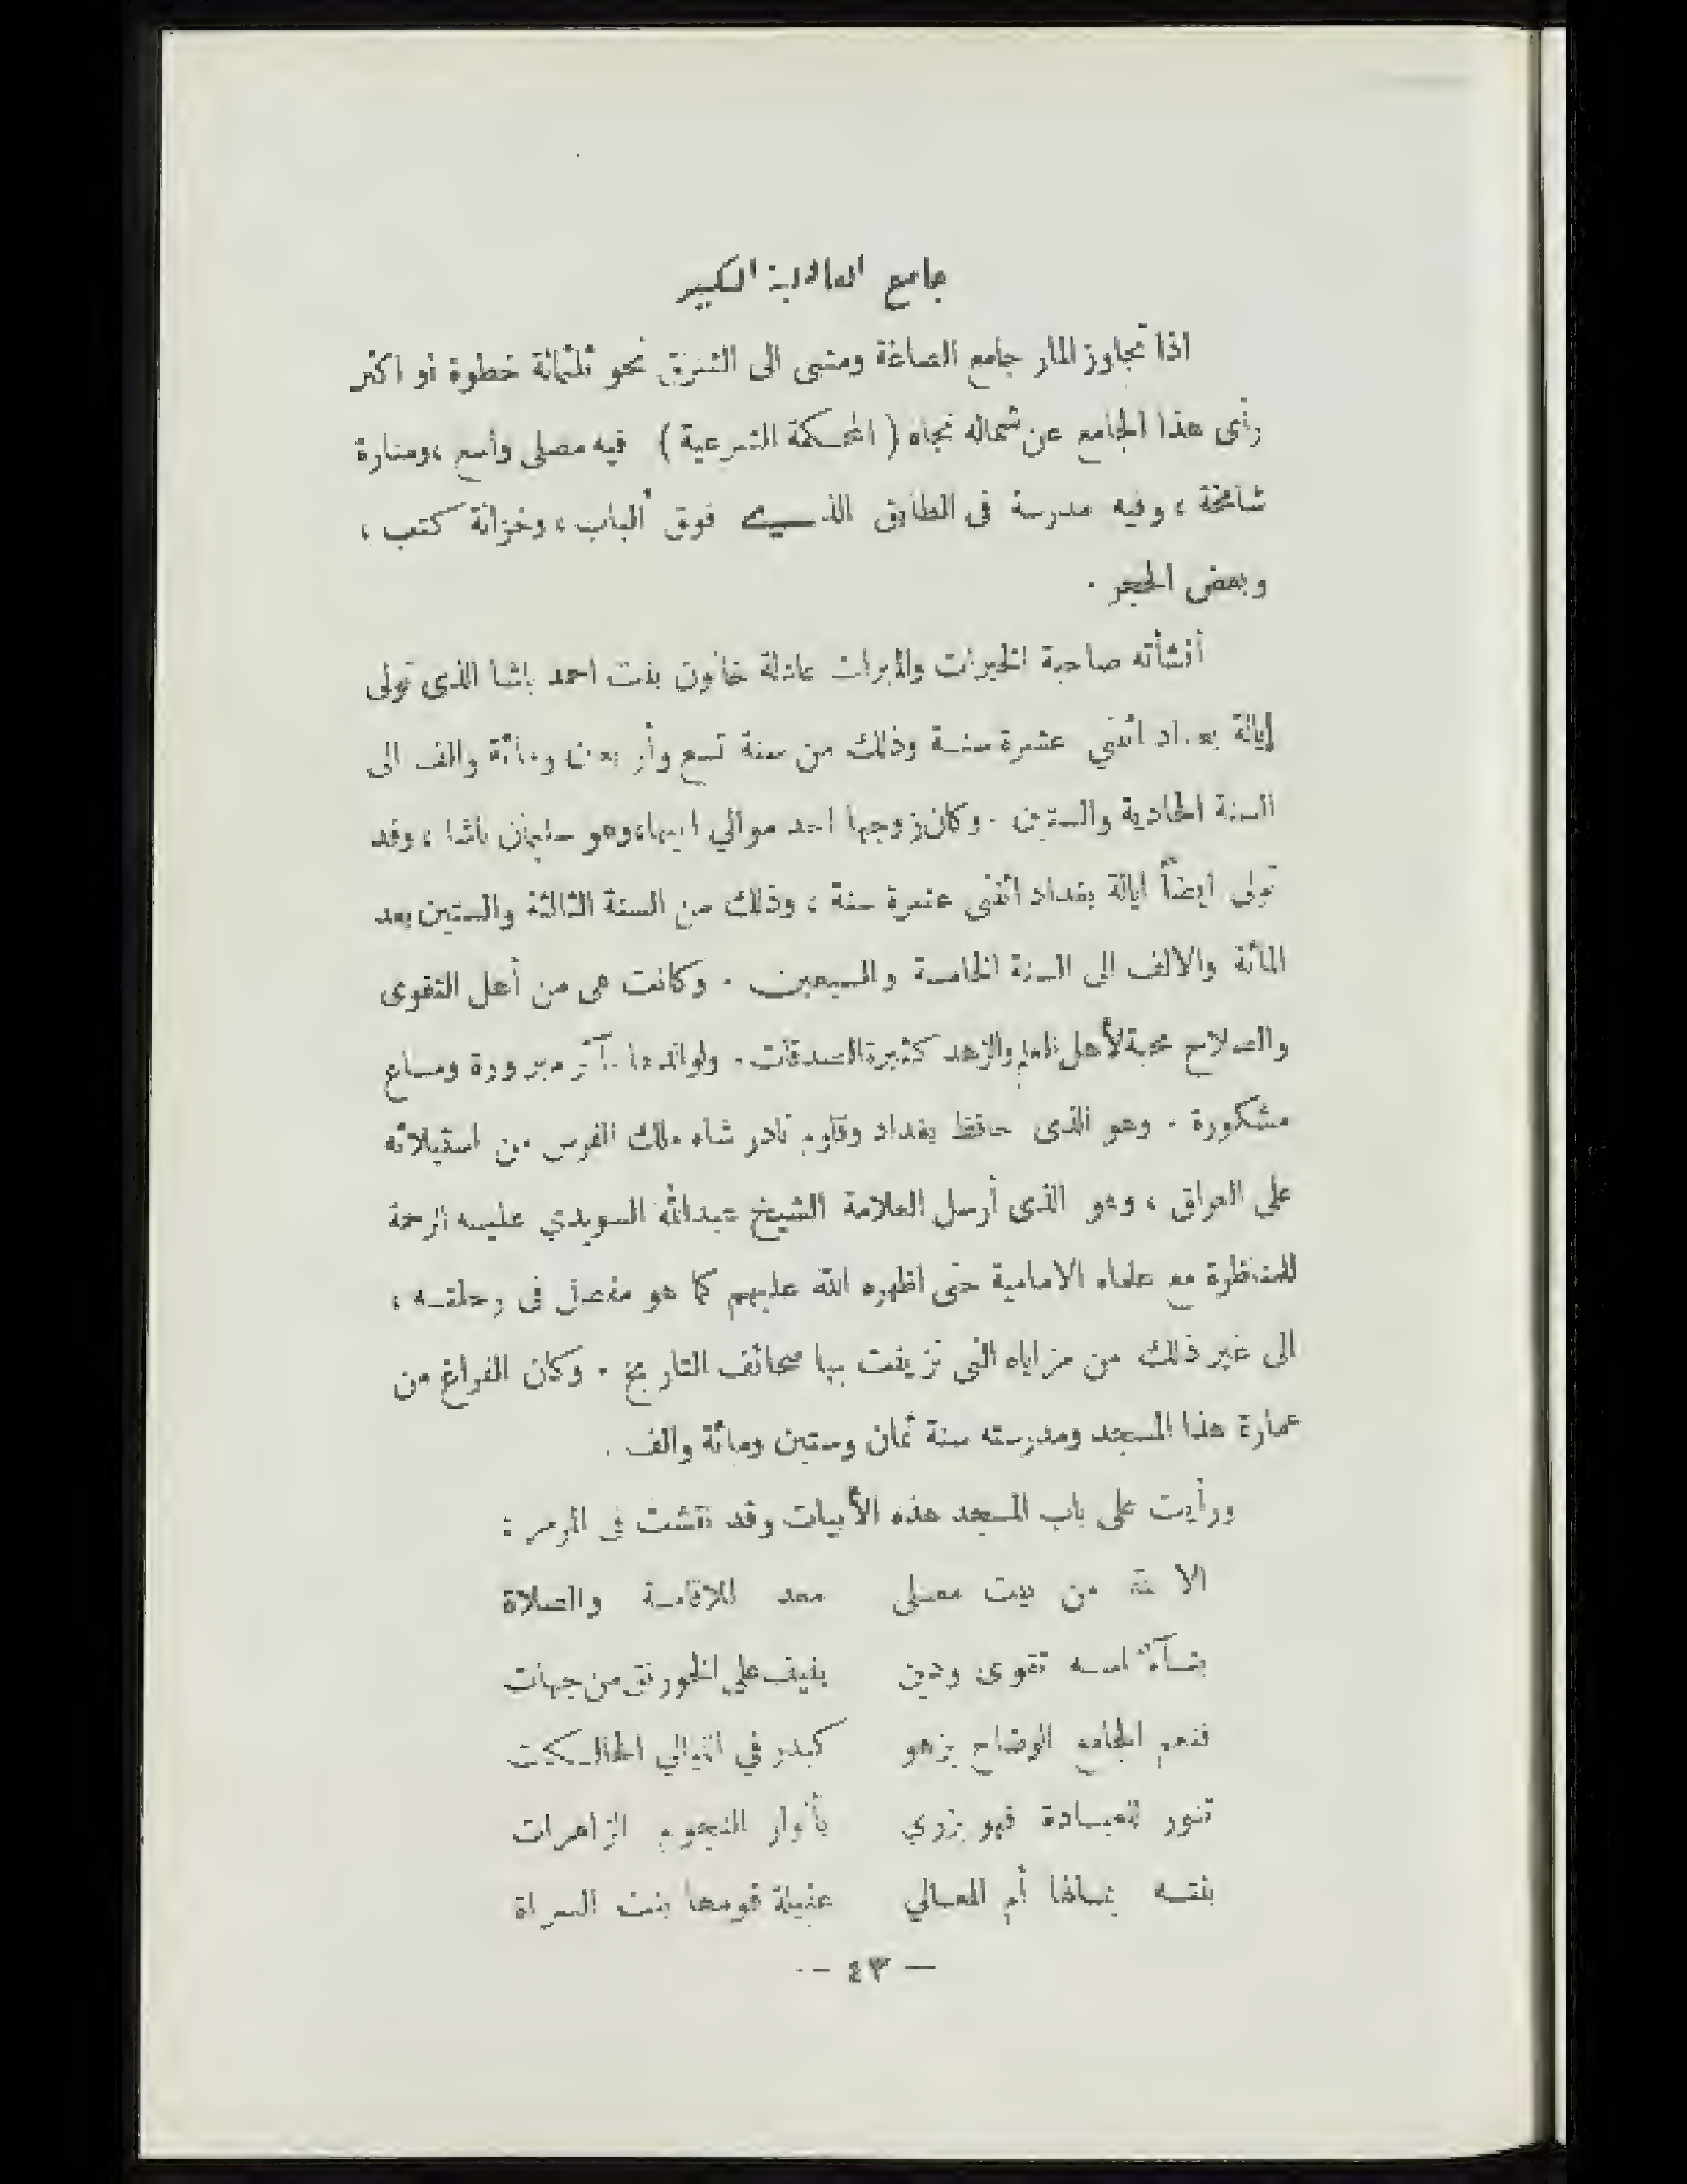 جامع العادلية الكبير
اذا تجاوز المار جامع الصاغة ومشى الى الشرق نحو ثلثمائة خطوة أو اكثر
رأى هذا الجامع عن شماله تجاه ( المحكمة الشرعية ) فيه مصلى واسع ، ومنارة
شامخة ، وفيه مدرسة فى الطابق الذي فوق الباب ، وخزانة كتب ،
وبعض الحجر .
أنشأته صاحبة الخيرات والمبرات عادلة خاتون بنت احمد باشا الذى تولى
إيالة بغداد اثنتي عشرة سنة وذلك من سنة تسع وأربعين ومائة والف الى
السنة الحادية والستين . وكان زوجها احد موالي ابيها ، وهو سليمان باشا ، وقد
تولى ايضاً ايالة بغداد اثنتى عشرة سنة ، وذلك من السنة الثالثة والستين بعد
المائة والالف الى السنة الخامسة والسبعين . وكانت هى من أهل التقوى
والصلاح محبة لأهل العلم والزهد كثيرة الصدقات . ولوالدها مآثر مبرورة ومساع
مشكورة . وهو الذى حافظ بغداد وقاوم نادر شاه ملك الفرس من استيلائه
على العراق ، وهو الذى أرسل العلامة الشيخ عبدالله السويدي عليه الرحمة
للمناظرة مع علماء الامامية حتى اظهره الله عليهم كما هو مفصل فى رحلته ،
الى غير ذلك من مزاياه التى تزينت بها صحائف التاريخ . وكان الفراغ من
عمارة هذا المسجد ومدرسته سنة ثمان وستين ومائة والف .
ورأيت على باب المسجد هذه الأبيات وقد نقشت فى المرمر :
الا لله من بيت معلى معد للاقامة والصلاة
بناء اسه تقوى ودين ينيف على الخورنق من جهات
فنعم الجامع الوضاح يزهو كبدر في الليالي الحالكات
تنور للعبادة فهو يزري بأنوار النجوم الزاهرات
بنته أم المعالي عقيلة قومها بنت السراة
— ٤٣ —